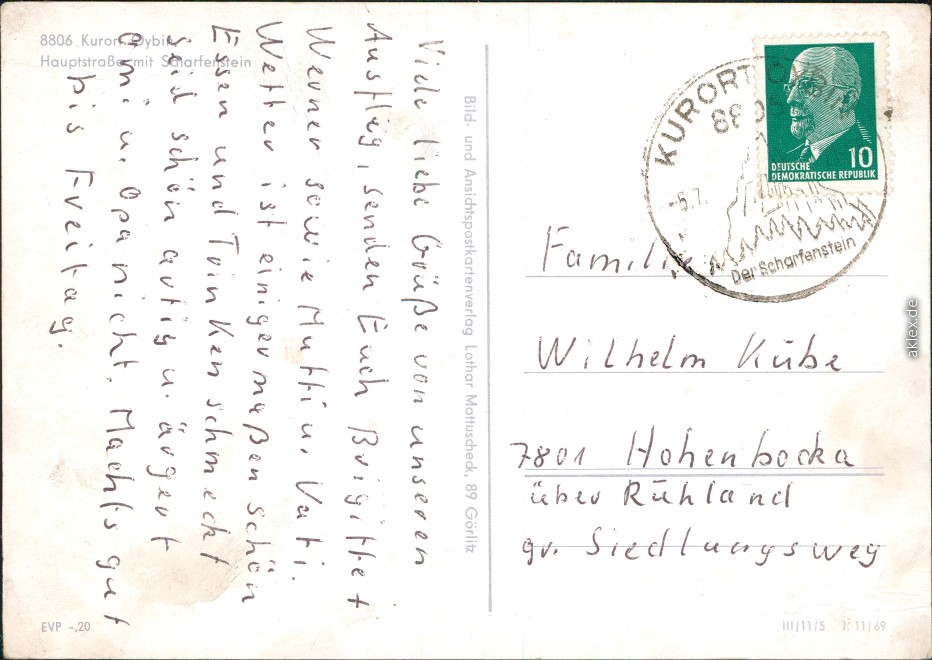 8806 Kurort Oybin
Hauptstraße mit Scharfenstein
Viele liebe Grüße von unseren
Ausflug, senden Euch Brigitte +
Werner sowie Mutti u. Vati.
Wetter ist einigermaßen schön
Essen und Trinken schmeckt
seid schön artig u. ärgert
Omi u. Opa nicht. Macht's gut
bis Freitag.
EVP -,20
Bild- und Ansichtspostkartenverlag Lothar Mattuscheck, 89 Görlitz
KURORT OYBIN
8806
-5.7.
Der Scharfenstein
10
DEUTSCHE
DEMOKRATISCHE REPUBLIK
Familie
Wilhelm Kübe
7801 Hohenbocka
über Ruhland
gr. Siedlungsweg
III/11/5 J. 11/69
aklex.de